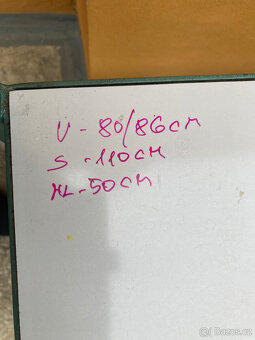 V - 80/86cm
S - 110cm
HL - 50cm
© Bazos.cz